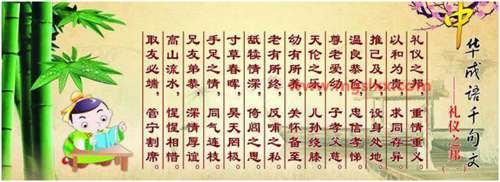 中华成语千句文
——礼仪之邦
礼仪之邦，重情重义
以和为贵，求同存异
推己及人，设身处地
温良恭俭，忠信孝悌
尊老爱幼，子孝父慈
天伦之乐，儿孙绕膝
幼有所，关怀备至
老有所终，反哺之恩
舐犊情深，倚闾之思
寸草春晖，昊天罔极
手足之情，同气连枝
兄友弟恭，深情厚谊
高山流水，惺惺相惜
取友必端，管宁割席